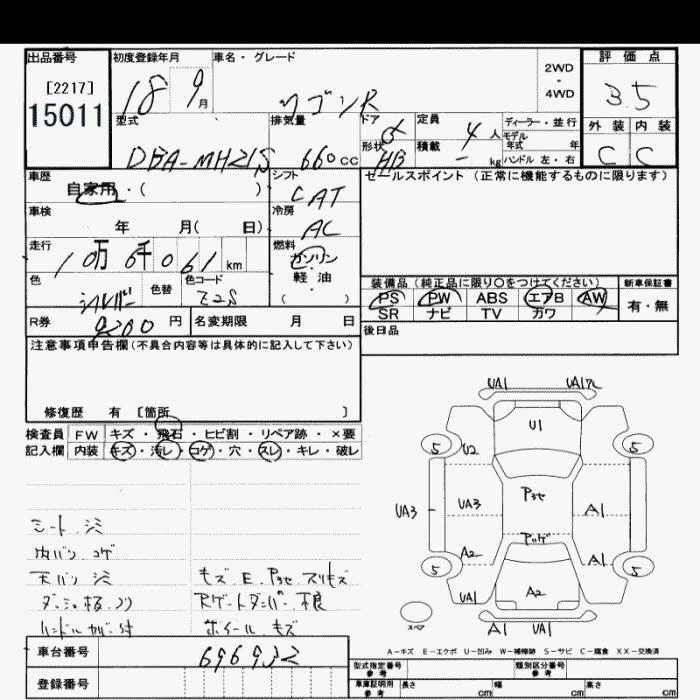 出品番号 初度登録年月 車名・グレード 2WD・4WD 評価点
[2217] 18 9月 ワゴンR 3.5
15011
型式 排気量 ドア 形状 定員 積載 ディーラー・並行 外装 内装
DBA-MH21S 660cc 5 HB 4人 - kg モデル年式 年 ハンドル 左・右 C C
車歴 シフト セールスポイント (正常に機能するものに限ります)
自家用・( ) CAT
車検 冷房
年 月( 日) AC
走行 燃料
10万6千061km ガソリン・軽油・( )
色 色替 色コード 装備品 (純正品に限り○をつけてください) 新車保証書
シルバー Z2S PS PW ABS エアB AW 有・無
SR ナビ TV カワ
R券 9200円 名変期限 月 日 後日品
注意事項申告欄(不具合内容等は具体的に記入して下さい)
修復歴 有 [箇所 ]
検査員 FW キズ・飛石・ヒビ割・リペア跡・×要
記入欄 内装 キズ・汚レ・コゲ・穴・スレ・キレ・破レ
UA1
U1
5 U2 5
UA3 UA3 A1
A2 A1
5 5
UA1 A2
A1 UA1
スペア
シート シミ
内バン コゲ
天バン シミ
キズ E
キズ
A-キズ E-エクボ U-凹み W-補修跡 S-サビ C-腐食 XX-交換済
車台番号 696932
登録番号
型式指定番号 参考 類別区分番号 参考
車庫証明用 参考 長さ cm 幅 cm 高さ cm